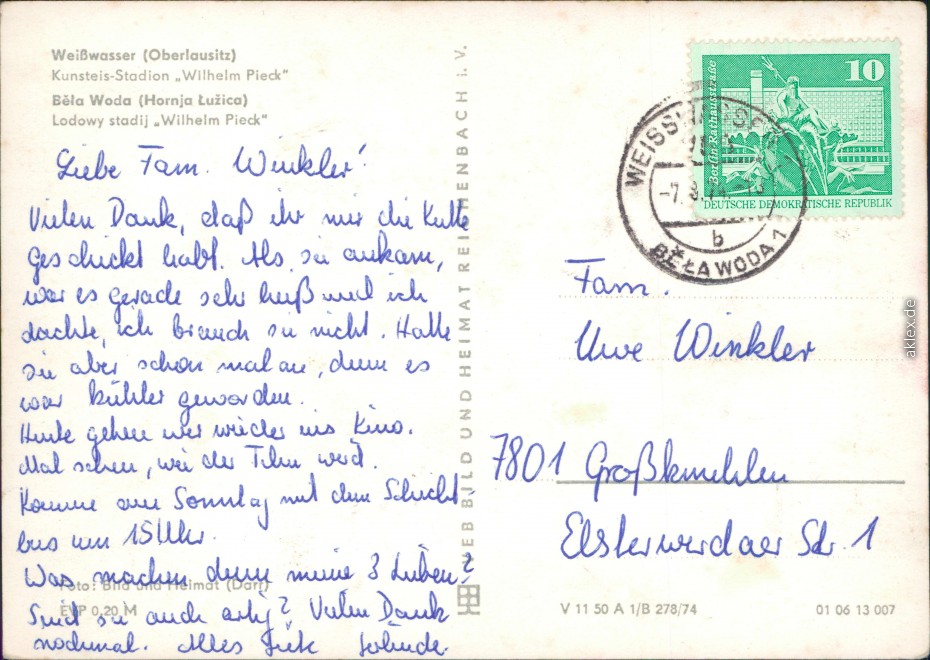 Weißwasser (Oberlausitz)
Kunsteis-Stadion „Wilhelm Pieck"
Běła Woda (Hornja Łužica)
Lodowy stadij „Wilhelm Pieck"
Liebe Fam. Winkler!
Vielen Dank, daß ihr mir die Kutte
geschickt habt. Als sie ankam,
war es gerade sehr heiß und ich
dachte, ich brauch sie nicht. Hatte
sie aber schon mal an, denn es
war kühler geworden.
Heute gehen wir wieder ins Kino.
Mal sehen, wie der Film wird.
Komme am Sonntag mit dem Schicht-
bus um 15 Uhr.
Was machen denn meine 3 Lieben?
Sind sie auch artig? Vielen Dank
nochmal. Alles Gute
Foto: Bild und Heimat (Darr)
EVP 0,20 M
VEB BILD UND HEIMAT REICHENBACH i. V.
10
Berlin Rathausstraße
DEUTSCHE DEMOKRATISCHE REPUBLIK
WEISSWASSER
b
BĚŁA WODA 1
Fam.
Uwe Winkler
7801 Großkmehlen
Elsterwerdaer Str. 1
V 11 50 A 1/B 278/74
01 06 13 007
aklex.de